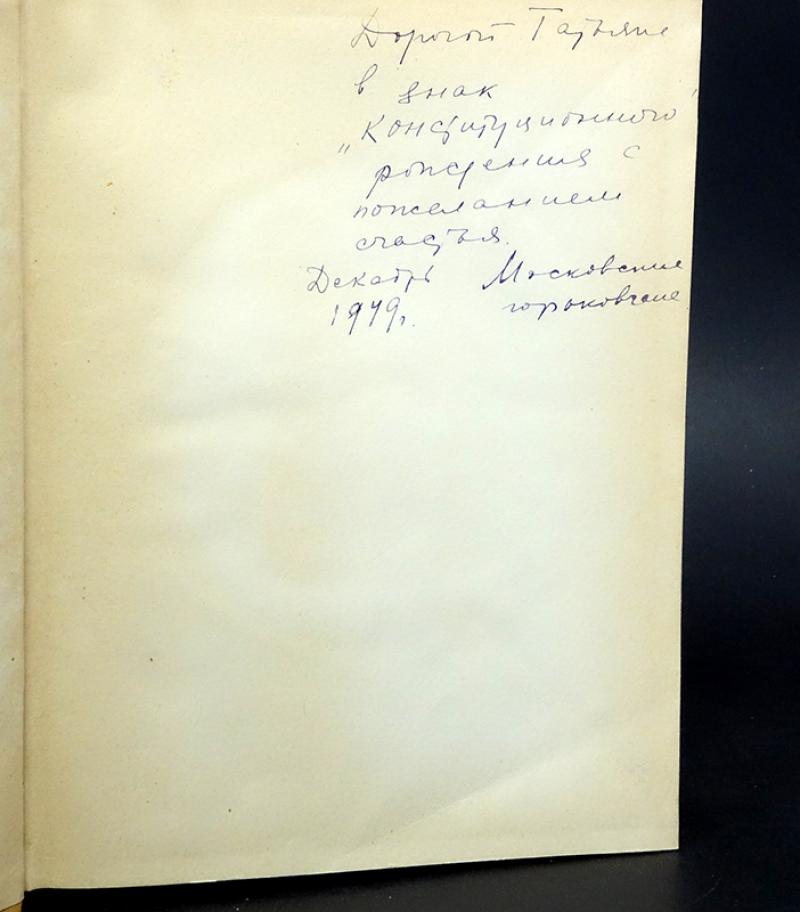 Дорогой Татьяне
в знак
„Конституционного"
рождения с
пожеланием
счастья.
Декабрь Московские
1979г. горьковчане